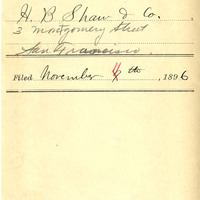 H. B Shaw & Co.
3 Montgomery Street
San Francisco.
Filed November 6th, 1896